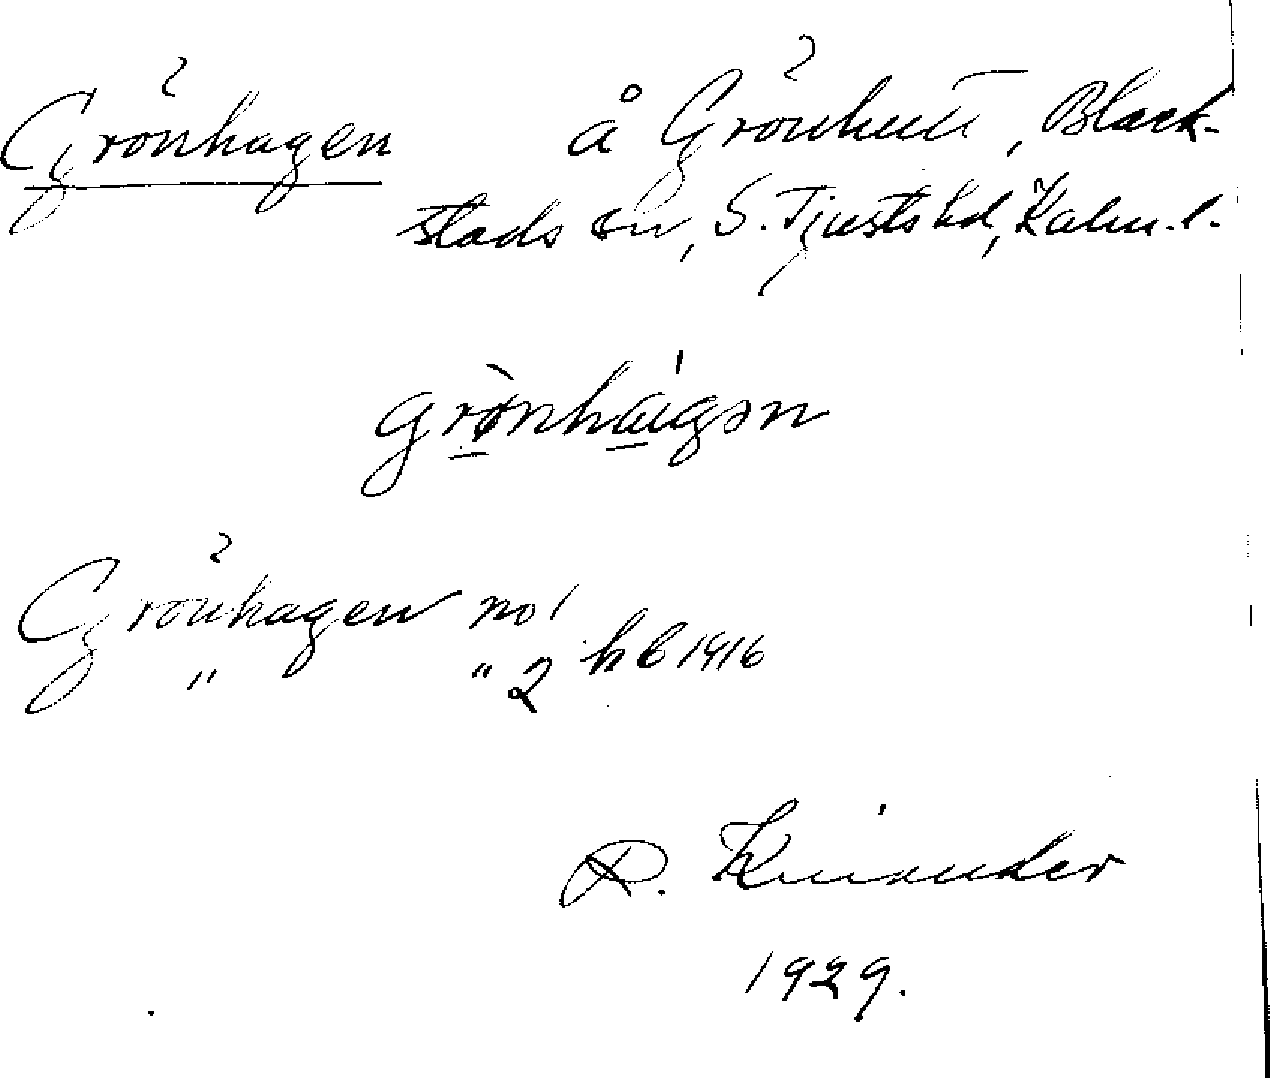 Grönhagen å Grönhult, Black-
stads sn, S. Tjusts hd, Kalm. l.
grö̀nhá̱gən
Grönhagen no 1
" " 2 hb 1916
R. Kinander
1929.